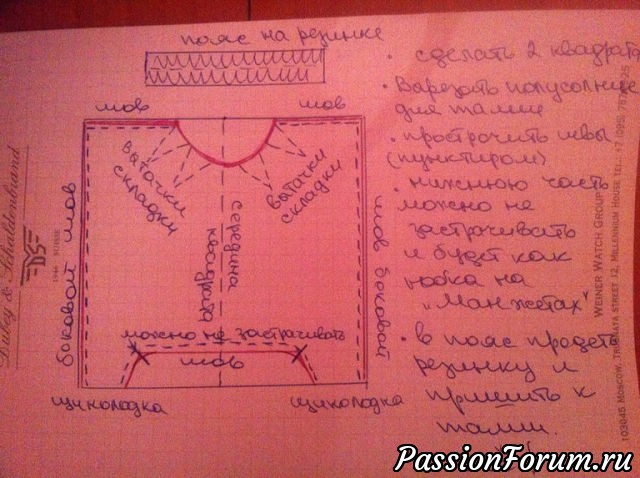 пояс на резинке
шов
шов
вытачки
складки
вытачки
складки
боковой шов
середина
квадрата
шов боковой
можно не застрачивать
шов
щиколодка
щиколодка
• сделать 2 квадрата
• Вырезать полусолнце
для талии
• прострочить швы
(пунктиром)
• нижнюю часть
можно не
застрачивать
и будет как
юбка на
"манжетах"
• в пояс продеть
резинку и
пришить к
талии.
Dubey & Schaldenbrand
1946 SUISSE
WEINER WATCH GROUP
103045 MOSCOW, TRUBNAYA STREET 12, MILLENNIUM HOUSE TEL.: +7 (095)
PassionForum.ru